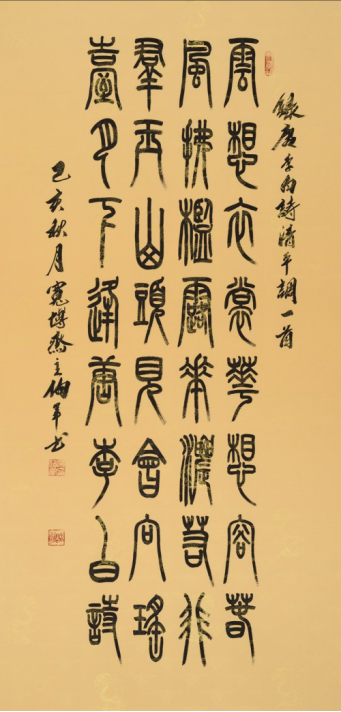 錄唐李白詩清平調一首
雲想衣裳華想容春
風拂檻露華濃若非
羣玉山頭見會向瑤
臺月下逢唐李白詩
己亥秋月寬博齋主書